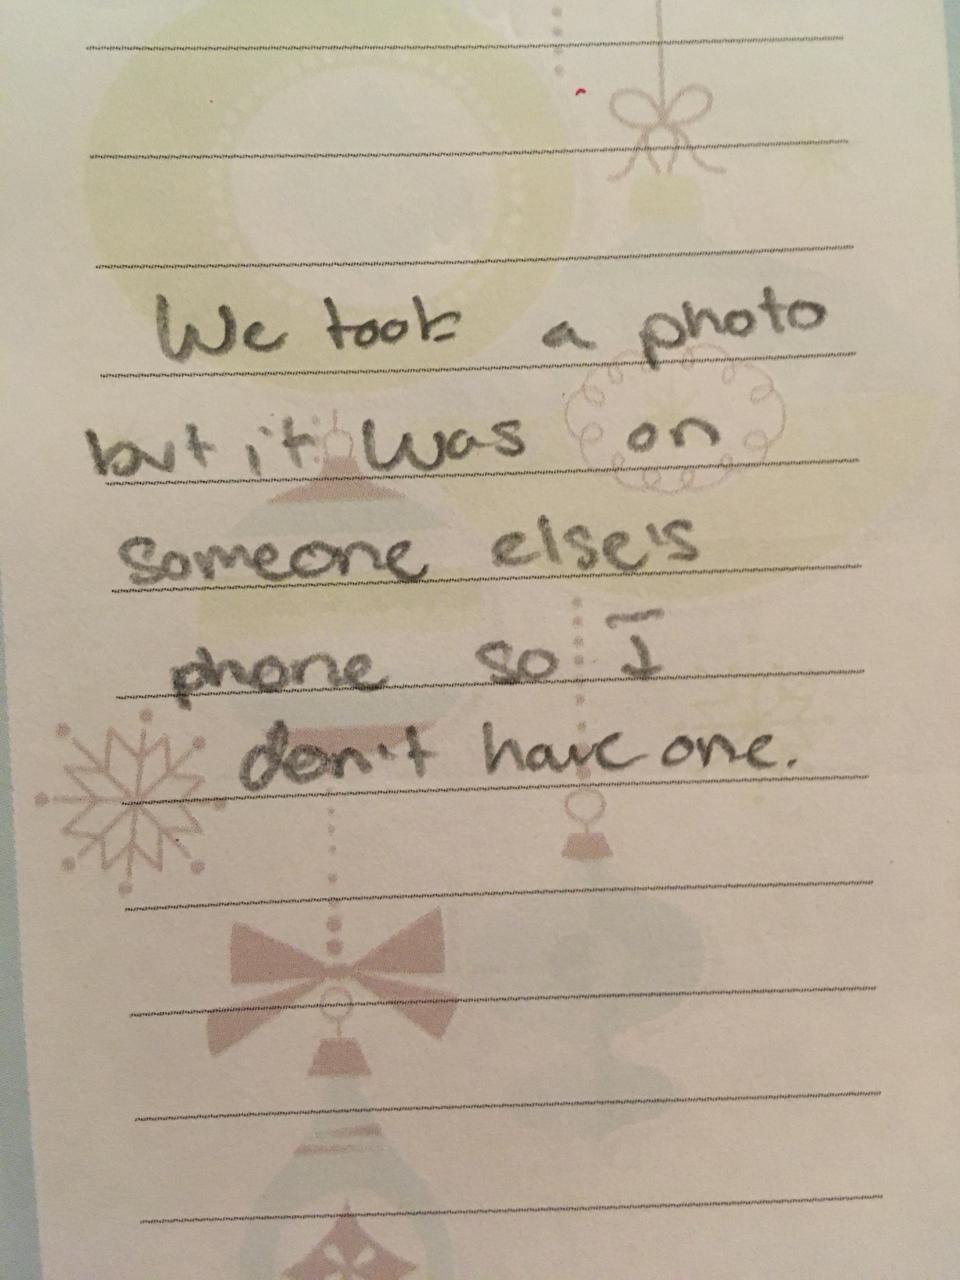 We took a photo
but it was on
someone else's
phone so I
don't have one.